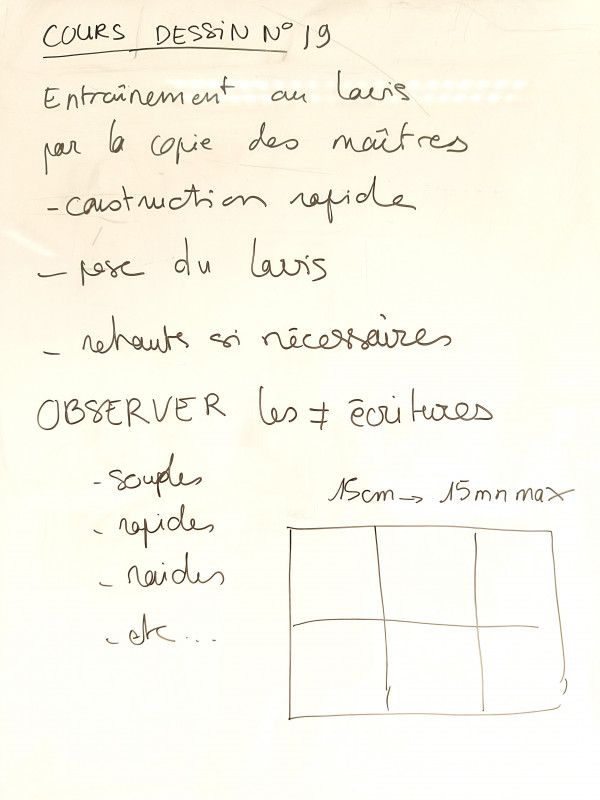 COURS DESSIN N° 19
Entraînement au lavis
par la copie des maîtres
- construction rapide
- pose du lavis
- rehauts si nécessaires
OBSERVER les ≠ écritures
- souples
- rapides
- raides
- etc...
15cm → 15mn max